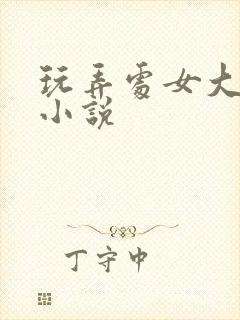 玩弄處女大
小說
丁守中